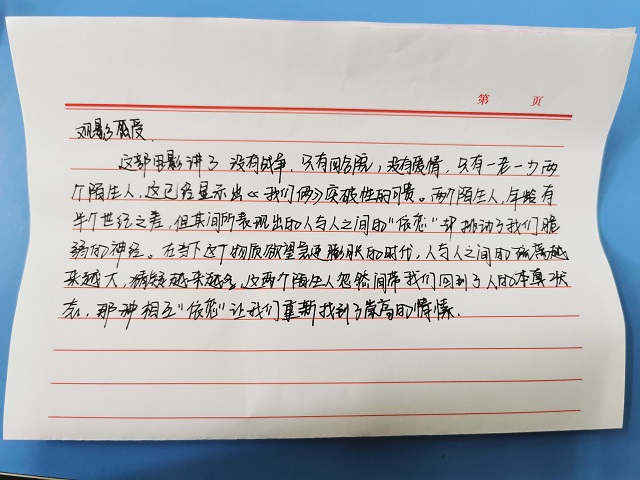 第 页
观影感受
这部电影讲了没有战争，只有四合院，没有爱情，只有一老一少两
个陌生人，这已经显示出《我们俩》突破性的可贵。两个陌生人，年龄有
半个世纪之差，但其间所表现出的人与人之间的“依恋”却挑动了我们脆
弱的神经。在当下这个物质欲望急速膨胀的时代，人与人之间的隔离越
来越大，猜疑越来越多，这两个陌生人忽然间带我们回到了人的本真状
态，那种相互“依恋”让我们重新找到了崇高的情愫。